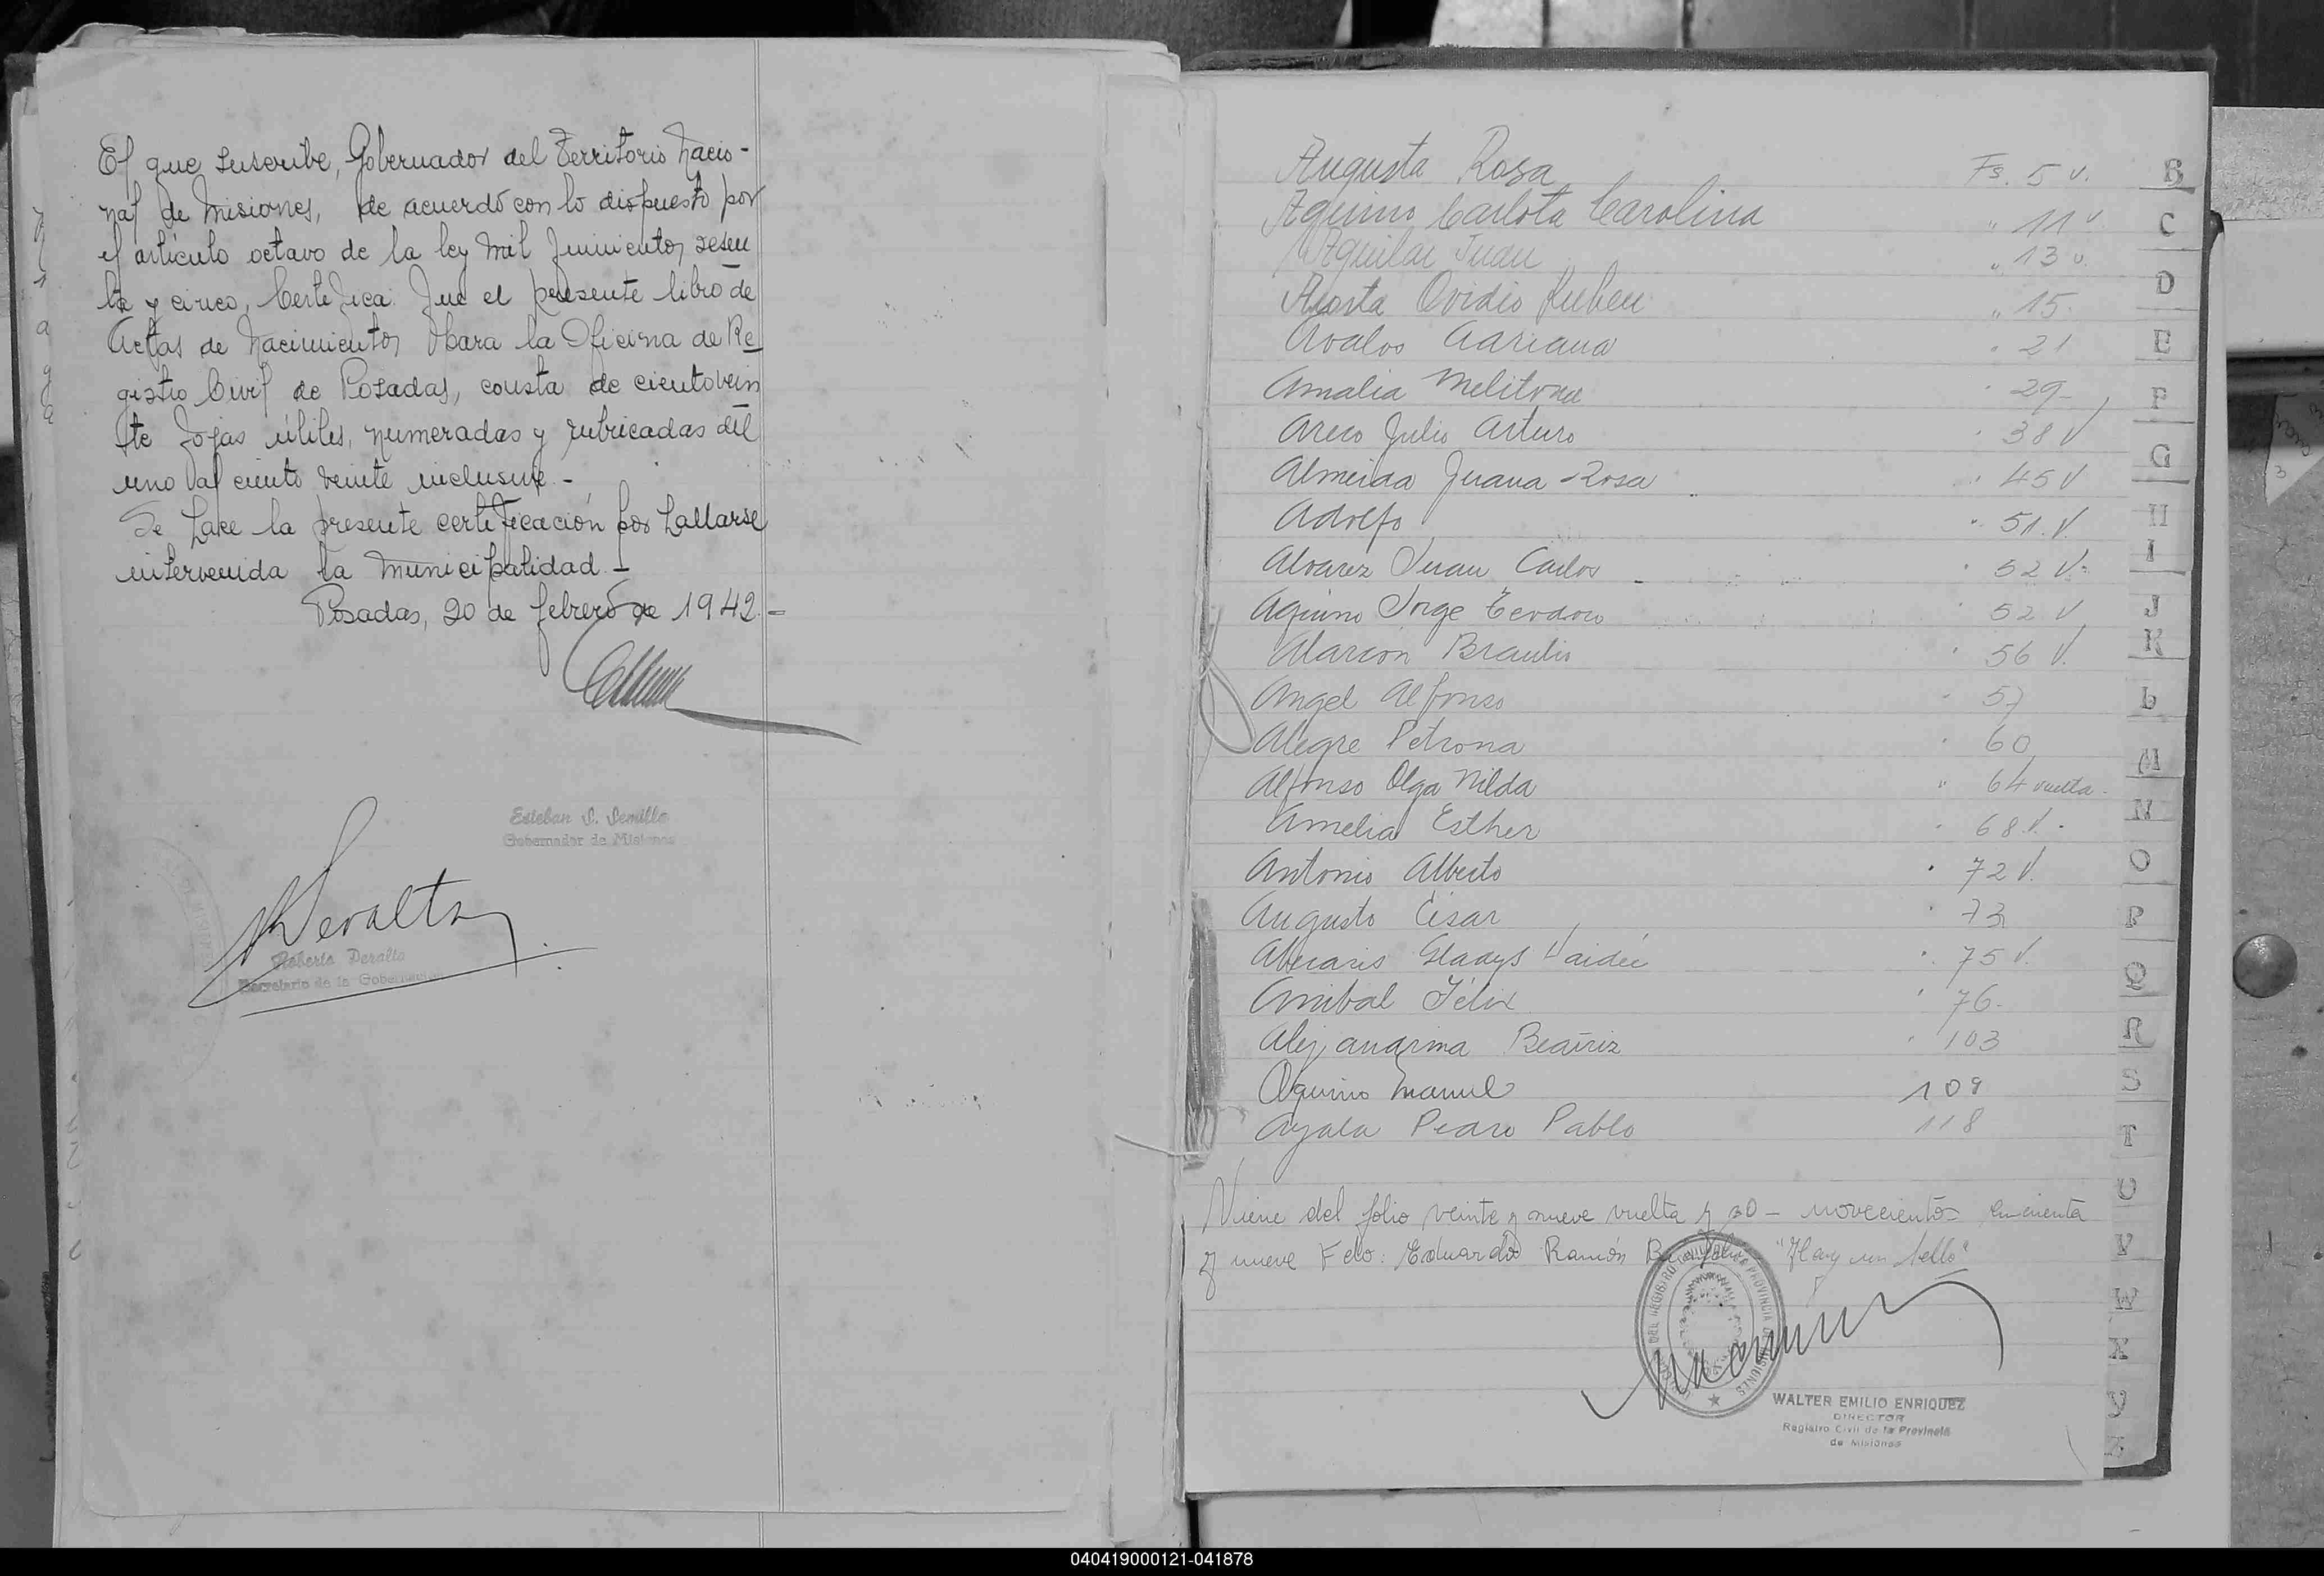 El que suscribe, Gobernador del Territorio Nacio-
nal de Misiones, de acuerdo con lo dispuesto por
el artículo octavo de la ley mil quinientos sesen
ta y cinco, Certifica: Que el presente libro de
Actas de Nacimientos para la Oficina de Re
gistro Civil de Posadas, consta de cientovein
te fojas útiles, numeradas y rubricadas del
uno al ciento veinte inclusive.-
Se hace la presente certificación por hallarse
intervenida la Municipalidad.-
Posadas, 20 de febrero de 1942.-
Esteban S. Semilla
Gobernador de Misiones
Peralta
Roberto Peralta
Secretario de la Gobernación
Augusta Rosa Fs. 5 v.
Aquino Carlota Carolina " 11 v.
Aguilar Juan " 13 v.
Acosta Ovidio Ruben " 15.
Avalos Adriana " 21
Amalia Melitona " 29-
Areco Julio Arturo " 38 V
Almeida Juana Rosa " 45 V
Adolfo " 51. V.
Alvarez Juan Carlos " 52 V.
Aquino Jorge Teodoro 52 V
Alarcón Braulio " 56 V.
Angel Alfonso " 57
Alegre Petrona " 60
Alfonso Olga Nilda " 64 vuelta.
Amelia Esther " 68 V.
Antonio Alberto " 72 V.
Augusto César " 73
Gladys Haideé " 75 V.
Anibal Félix " 76.
Alejandrina Beatriz " 103
Aquino Manuel 109
Ayala Pedro Pablo 118
Viene del folio veinte y nueve vuelta y 30 - novecientos cincuenta
y nueve Fdo: Eduardo Ramón "Hay un sello"
DEL REGISTRO CIVIL DE LA PROVINCIA DE MISIONES
WALTER EMILIO ENRIQUEZ
DIRECTOR
Registro Civil de la Provincia
de Misiones
B
C
D
E
F
G
H
I
J
K
L
M
N
O
P
Q
R
S
T
U
V
W
X
Y
Z
040419000121-041878